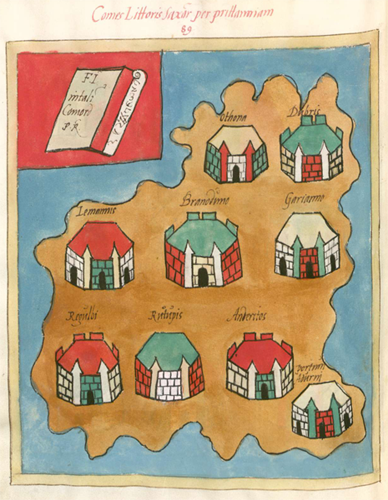 Comes Littoris Saxōr per prittanniam
89
FI
intall
Comord
p R
Othona
Dubris
Lemannis
Branoduno
Garianno
Regulbi
Rutupis
Anderidos
portum
Adurni